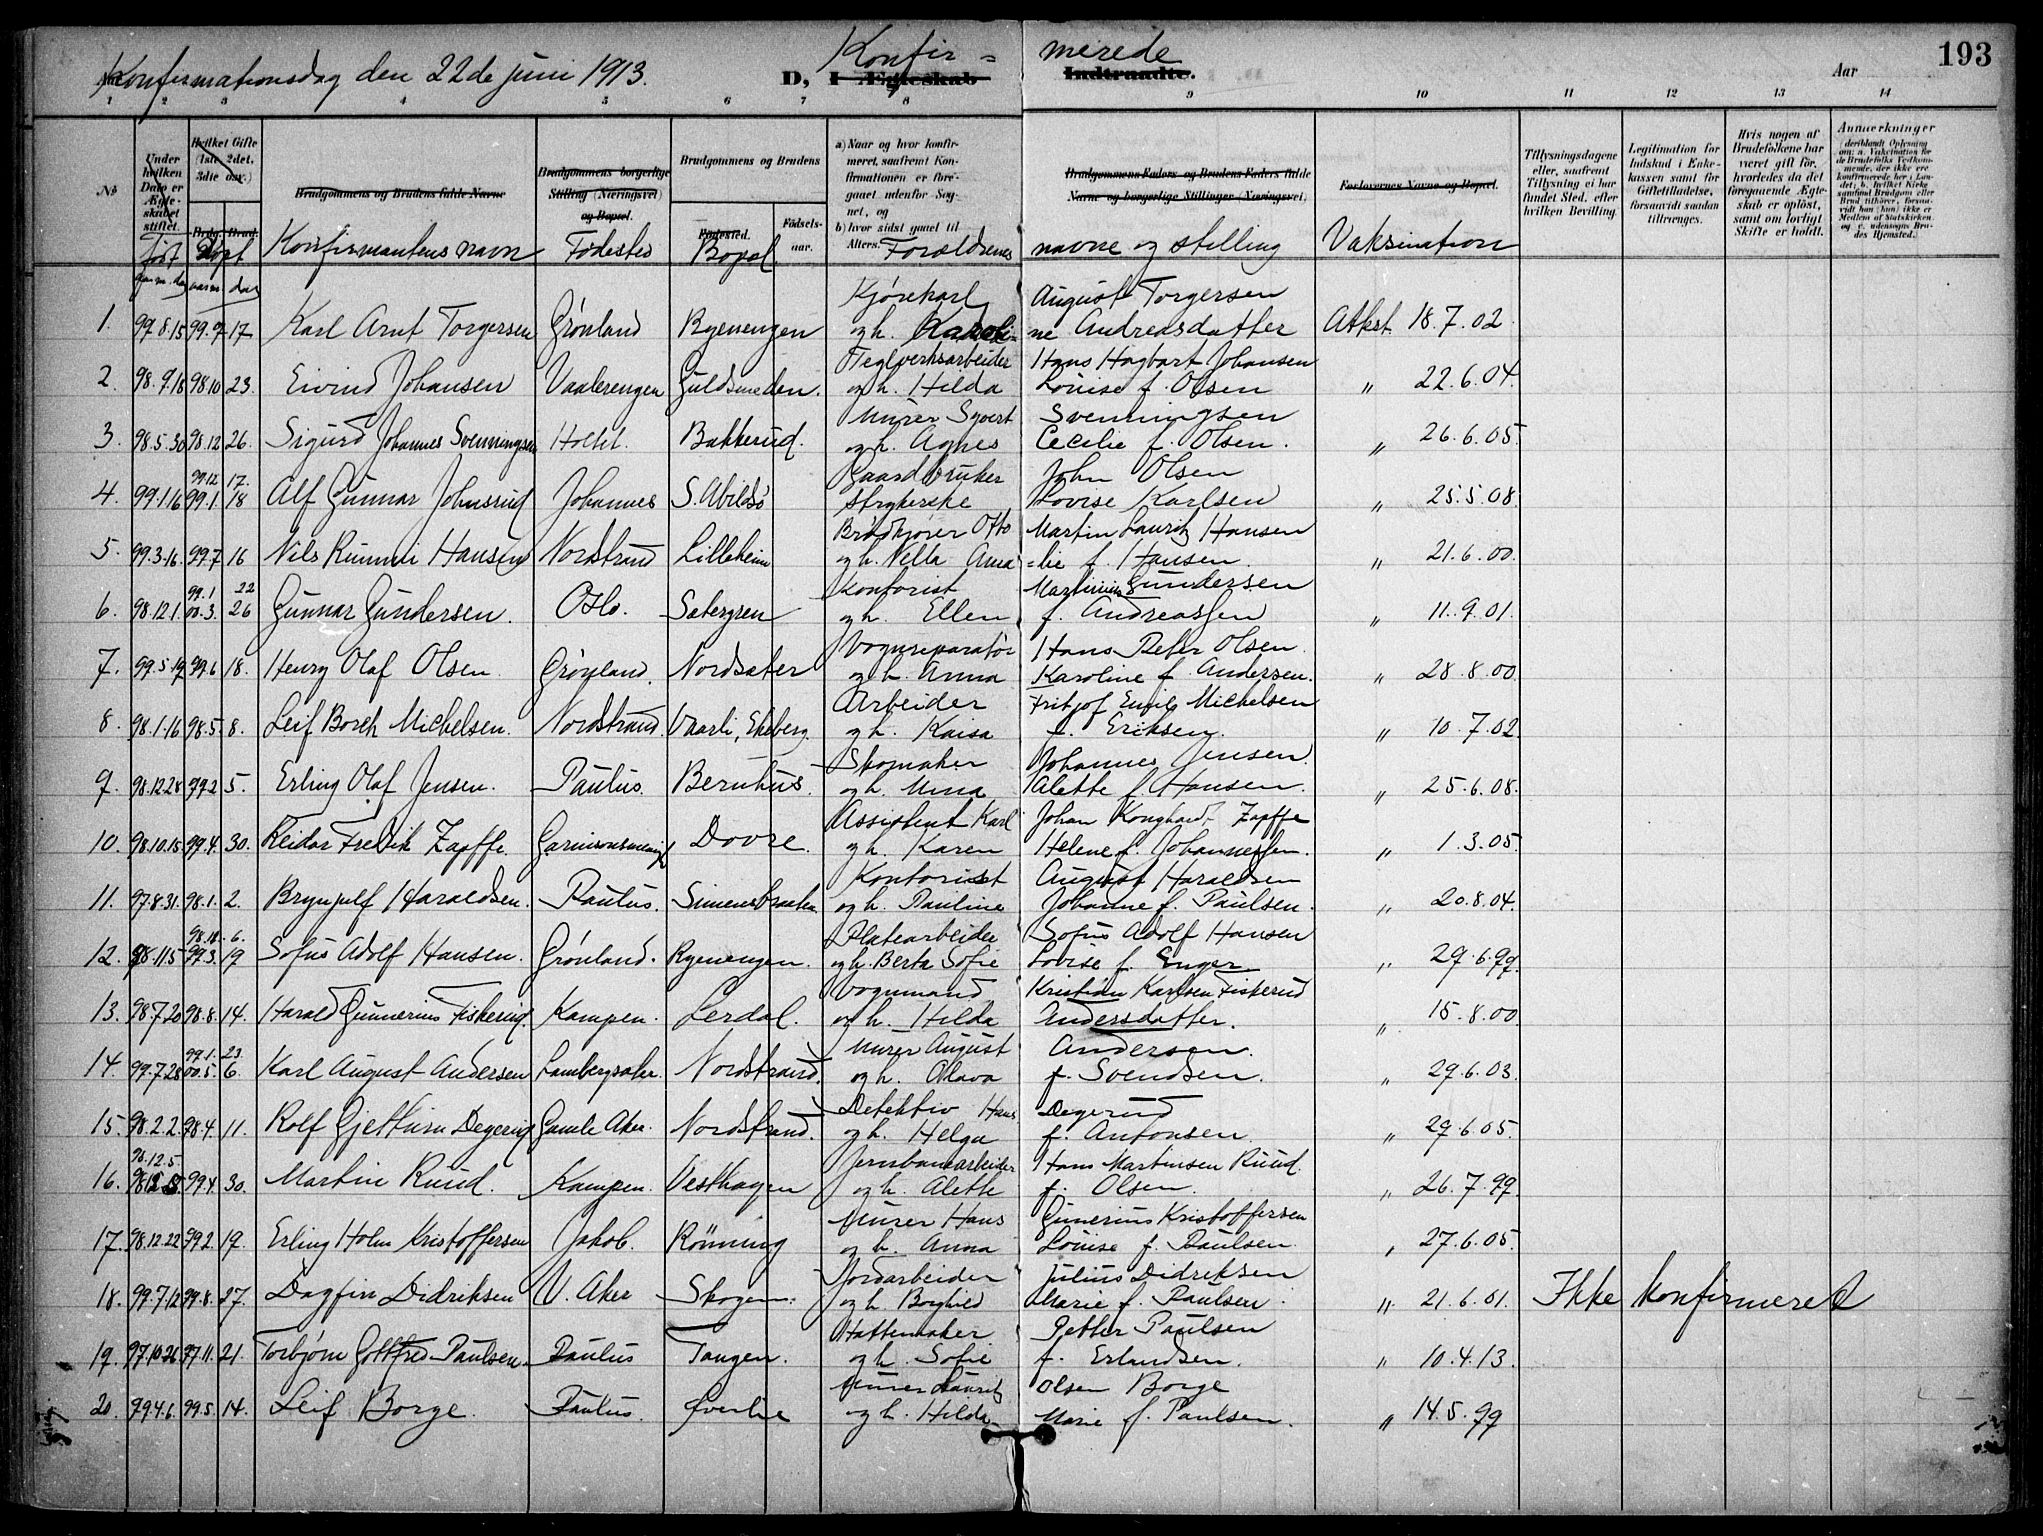 193
Konfirmationsdag den 22de juni 1913. Konfir= merede
D, I Ægteskab Indtraadte. Aar
1 2 3 4 5 6 7 8 9 10 11 12 13 14
No
Under hvilken Dato er Ægteskabet stiftet.
Hvilket Gifte (1ste, 2det, 3die osv.)
Brdg. Brud.
Brudgommens og Brudens fulde Navne
Brudgommens borgerlige Stilling (Næringsvei) og Bopæl.
Brudgommens og Brudens
Fødested. Fødselsaar.
a) Naar og hvor konfirmeret, saafremt Konfirmationen er foregaaet udenfor Sognet, og
b) hvor sidst gaaet til Alters.
Brudgommens Faders og Brudens Faders fulde Navne og borgerlige Stillinger (Næringsvei)
Forlovernes Navne og Bopæl.
Tillysningsdagene eller, saafremt Tillysning ei har fundet Sted, efter hvilken Bevilling
Legitimation for Indskud i Enkekassen samt for Giftetilladelse, forsaavidt saadan tiltrænges.
Hvis nogen af Brudefolkene har været gift før, hvorledes da det foregaaende Ægteskab er opløst, samt om lovligt Skifte er holdt.
Anmerkninger
Født Døpt Konfirmantens navn Fødested Bopæl Forældrenes navne og stilling Vaksination
1. 99.8.15 99.9.17 Karl Arnt Torgersen Grønland Ryenengen Kjørekarl August Torgersen
og h. Karoline Andreasdatter Atkst. 18.7.02.
2. 98.9.18 98.10 23. Eivind Johansen Vaalerengen Guldsmeden. Teglverksarbeider Hans Hagbart Johansen
og h. Hilda Louise f. Olsen " 22.6.04.
3. 98.5.30 98.12 26. Sigurd Johannes Svenningsen Holtet. Bakkerud. Murer Syvert Svenningsen
og h. Agnes Cecilie f. Olsen. " 26.6.05.
4. 99.1.16 99.12 17. 99.1. 18 Alf Gunnar Johnsrud Johannes S. Abildsø Gaardbruker John Olsen
Strykerske Lovise Karlsen " 25.5.08.
5. 99.3.16. 99.7 16 Nils Rummi Hansen Nordstrand Lilleheim Brødkjører Otto Martin Lauritz Hansen
og h. Nella Ama=lie f. Hansen. " 21.6.00.
6. 98.12.1 99.1 22 00.3. 26 Gunnar Gundersen. Oslo. Setergren Kontorist Martinius Gundersen
og h. Ellen f. Andreassen " 11.9.01.
7. 99.5.19 99.6 18. Henry Olaf Olsen Grønland. Nordsæter Vognreparatør Hans Peter Olsen
og h. Anna Karoline f. Andersen. " 28.8.00.
8. 98.1.16 98.5. 8. Leif Borch Michelsen. Nordstrand. Vaarli, Ekeberg Arbeider Fritjof Emil Michelsen
og h. Kaisa f. Eriksen. " 10.7.02
9. 98.12.28 99.2 5. Erling Olaf Jensen. Paulus. Bernhus. Skomaker Johannes Jensen.
og h. Mina Alette f. Hansen. " 25.6.08.
10. 98.10.15 99.4. 30. Reidar Fredrik Zapffe. Garnisonsmenigh Dovre. Assistent Karl Johan Konghard Zapffe
og h. Karen Helene f. Johannessen. " 1.3.05.
11. 97.8.31. 98.1. 2. Brynjulf Haraldsen. Paulus. Simensbraaten Kontorist August Haraldsen
og h. Pauline Johanne f. Paulsen. " 20.8.04.
12. 98.11.5 98.12. 6. 99.3. 19 Sofus Adolf Hansen. Grønland. Ryenengen. Platearbeider Sofus Adolf Hansen
og h. Berta Sofie Lovise f. Enger " 29.6.99.
13. 98.7.20 98.8. 14. Harald Gunnerius Fiskerud. Kampen. Lerdal. Vognmand Kristian Karlsen Fiskerud
og h. Hilda Andersdatter. " 15.8.00
14. 99.7.28 99.1. 23. 00.5. 6. Karl August Andersen Lambergsæter. Nordstrand. Murer August Andersen.
og h. Olava f. Svendsen. " 29.6.03.
15. 98.2.2. 98.4. 11. Rolf Gjettum Degerud Gamle Aker. Nordstrand. Detektiv Hans Degerud
og h. Helga f. Antonsen. " 29.6.05.
16. 98.12.5 99.4. 30. Martin Ruud. Kampen. Vesthagen Jernbanearbeider Hans Martinsen Ruud.
og h. Alette f. Olsen. " 26.7.99.
17. 98.12.22 99.2. 19. Erling Holm Kristoffersen Jakob. Rønning Murer Hans Gunerius Kristoffersen
og h. Anna Louise f. Paulsen. " 27.6.05.
18. 99.7.12 99.8. 27. Dagfin Didriksen V. Aker Skogen. Jordarbeider Julius Didriksen
og h. Borghild Marie f. Paulsen. " 21.6.01. Ikke konfirmeret
19. 97.10.26. 97.11. 21. Torbjørn Gottfred Paulsen. Paulus Tangen. Hattemaker Petter Paulsen
og h. Sofie f. Erlandsen. " 10.4.13.
20. 99.4.6. 99.5. 14. Leif Borge. Paulus. Kverlie Murer Lauritz Olsen Borge
og h. Hilda Marie f. Paulsen. " 14.5.99